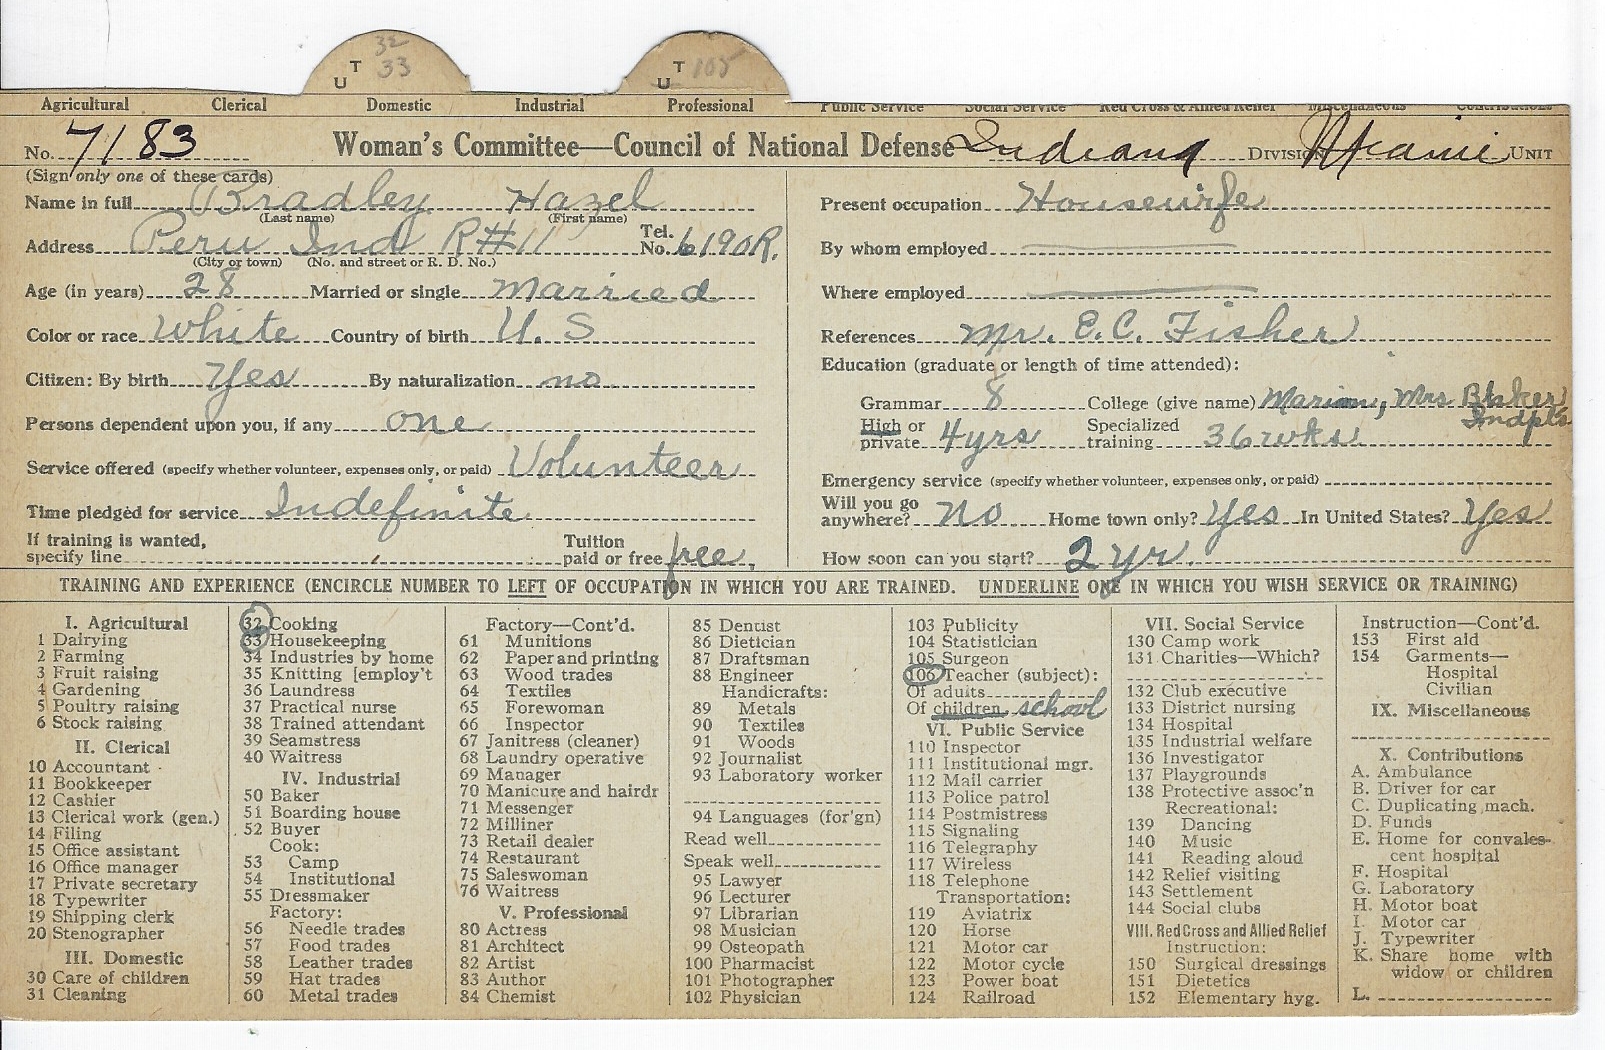 32
T 33
U
T 105
U
Agricultural Clerical Domestic Industrial Professional Public Service Social Service Red Cross & Allied Relief Miscellaneous Contributions
No. 7183 Woman's Committee—Council of National Defense Indiana DIVISION Miami UNIT
(Sign only one of these cards)
Name in full Bradley Hazel
(Last name) (First name)
Address Peru Ind R#11 Tel. No. 6190R.
(City or town) (No. and street or R. D. No.)
Age (in years) 28 Married or single Married
Color or race White Country of birth U. S
Citizen: By birth Yes By naturalization no
Persons dependent upon you, if any one
Service offered (specify whether volunteer, expenses only, or paid) Volunteer
Time pledged for service Indefinite
If training is wanted,
specify line Tuition paid or free free
Present occupation Housewife
By whom employed
Where employed
References Mr. E.C. Fisher
Education (graduate or length of time attended):
Grammar 8 College (give name) Marion, Mrs Blaker Indpls
High or private 4yrs Specialized training 36 wks.
Emergency service (specify whether volunteer, expenses only, or paid)
Will you go anywhere? No Home town only? Yes In United States? Yes
How soon can you start? 2 yr.
TRAINING AND EXPERIENCE (ENCIRCLE NUMBER TO LEFT OF OCCUPATION IN WHICH YOU ARE TRAINED. UNDERLINE ONE IN WHICH YOU WISH SERVICE OR TRAINING)
I. Agricultural
1 Dairying
2 Farming
3 Fruit raising
4 Gardening
5 Poultry raising
6 Stock raising
II. Clerical
10 Accountant
11 Bookkeeper
12 Cashier
13 Clerical work (gen.)
14 Filing
15 Office assistant
16 Office manager
17 Private secretary
18 Typewriter
19 Shipping clerk
20 Stenographer
III. Domestic
30 Care of children
31 Cleaning
32 Cooking
33 Housekeeping
34 Industries by home
35 Knitting [employ't
36 Laundress
37 Practical nurse
38 Trained attendant
39 Seamstress
40 Waitress
IV. Industrial
50 Baker
51 Boarding house
52 Buyer
Cook:
53 Camp
54 Institutional
55 Dressmaker
Factory:
56 Needle trades
57 Food trades
58 Leather trades
59 Hat trades
60 Metal trades
Factory—Cont'd.
61 Munitions
62 Paper and printing
63 Wood trades
64 Textiles
65 Forewoman
66 Inspector
67 Janitress (cleaner)
68 Laundry operative
69 Manager
70 Manicure and hairdr
71 Messenger
72 Milliner
73 Retail dealer
74 Restaurant
75 Saleswoman
76 Waitress
V. Professional
80 Actress
81 Architect
82 Artist
83 Author
84 Chemist
85 Dentist
86 Dietician
87 Draftsman
88 Engineer
Handicrafts:
89 Metals
90 Textiles
91 Woods
92 Journalist
93 Laboratory worker
94 Languages (for'gn)
Read well
Speak well
95 Lawyer
96 Lecturer
97 Librarian
98 Musician
99 Osteopath
100 Pharmacist
101 Photographer
102 Physician
103 Publicity
104 Statistician
105 Surgeon
106 Teacher (subject):
Of adults
Of children school
VI. Public Service
110 Inspector
111 Institutional mgr.
112 Mail carrier
113 Police patrol
114 Postmistress
115 Signaling
116 Telegraphy
117 Wireless
118 Telephone
Transportation:
119 Aviatrix
120 Horse
121 Motor car
122 Motor cycle
123 Power boat
124 Railroad
VII. Social Service
130 Camp work
131 Charities—Which?
132 Club executive
133 District nursing
134 Hospital
135 Industrial welfare
136 Investigator
137 Playgrounds
138 Protective assoc'n
Recreational:
139 Dancing
140 Music
141 Reading aloud
142 Relief visiting
143 Settlement
144 Social clubs
VIII. Red Cross and Allied Relief
Instruction:
150 Surgical dressings
151 Dietetics
152 Elementary hyg.
Instruction—Cont'd.
153 First aid
154 Garments—
Hospital
Civilian
IX. Miscellaneous
X. Contributions
A. Ambulance
B. Driver for car
C. Duplicating mach.
D. Funds
E. Home for convales-
cent hospital
F. Hospital
G. Laboratory
H. Motor boat
I. Motor car
J. Typewriter
K. Share home with
widow or children
L.